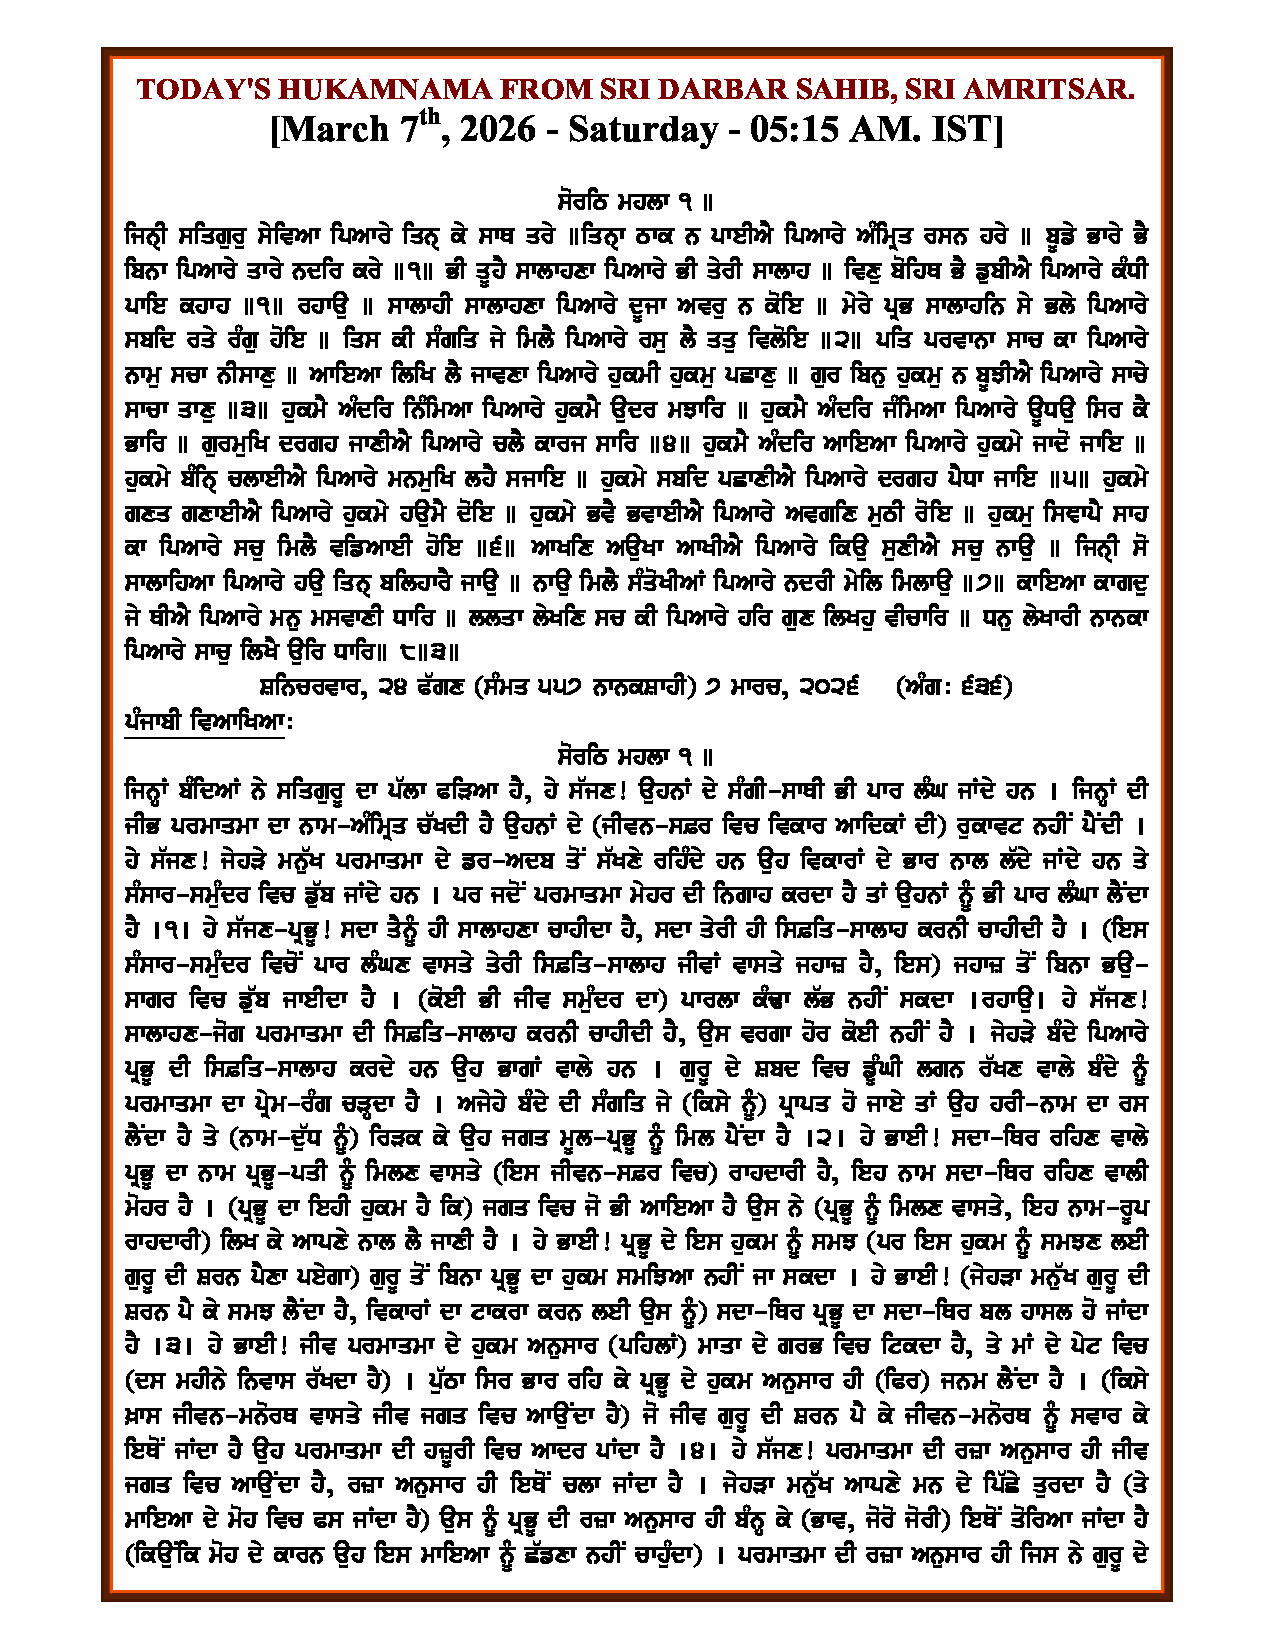 TODAY'S HUKAMNAMA FROM SRI DARBAR SAHIB, SRI AMRITSAR.
[March 7th, 2026 - Saturday - 05:15 AM. IST]
ਸੋਰਠਿ ਮਹਲਾ ੧ ॥
ਜਿਨ੍ਹੀ ਸਤਿਗੁਰੁ ਸੇਵਿਆ ਪਿਆਰੇ ਤਿਨ੍ਹ ਕੇ ਸਾਥ ਤਰੇ ॥ਤਿਨ੍ਹਾ ਠਾਕ ਨ ਪਾਈਐ ਪਿਆਰੇ ਅੰਮ੍ਰਿਤ ਰਸਨ ਹਰੇ ॥ ਬੂਡੇ ਭਾਰੇ ਭੈ
ਬਿਨਾ ਪਿਆਰੇ ਤਾਰੇ ਨਦਰਿ ਕਰੇ ॥੧॥ ਭੀ ਤੂਹੈ ਸਾਲਾਹਣਾ ਪਿਆਰੇ ਭੀ ਤੇਰੀ ਸਾਲਾਹ ॥ ਵਿਣੁ ਬੋਹਿਥ ਭੈ ਡੁਬੀਐ ਪਿਆਰੇ ਕੰਧੀ
ਪਾਇ ਕਹਾਹ ॥੧॥ ਰਹਾਉ ॥ ਸਾਲਾਹੀ ਸਾਲਾਹਣਾ ਪਿਆਰੇ ਦੂਜਾ ਅਵਰੁ ਨ ਕੋਇ ॥ ਮੇਰੇ ਪ੍ਰਭ ਸਾਲਾਹਨਿ ਸੇ ਭਲੇ ਪਿਆਰੇ
ਸਬਦਿ ਰਤੇ ਰੰਗੁ ਹੋਇ ॥ ਤਿਸ ਕੀ ਸੰਗਤਿ ਜੇ ਮਿਲੈ ਪਿਆਰੇ ਰਸੁ ਲੈ ਤਤੁ ਵਿਲੋਇ ॥੨॥ ਪਤਿ ਪਰਵਾਨਾ ਸਾਚ ਕਾ ਪਿਆਰੇ
ਨਾਮੁ ਸਚਾ ਨੀਸਾਣੁ ॥ ਆਇਆ ਲਿਖਿ ਲੈ ਜਾਵਣਾ ਪਿਆਰੇ ਹੁਕਮੀ ਹੁਕਮੁ ਪਛਾਣੁ ॥ ਗੁਰ ਬਿਨੁ ਹੁਕਮੁ ਨ ਬੂਝੀਐ ਪਿਆਰੇ ਸਾਚੇ
ਸਾਚਾ ਤਾਣੁ ॥੩॥ ਹੁਕਮੈ ਅੰਦਰਿ ਨਿੰਮਿਆ ਪਿਆਰੇ ਹੁਕਮੈ ਉਦਰ ਮਝਾਰਿ ॥ ਹੁਕਮੈ ਅੰਦਰਿ ਜੰਮਿਆ ਪਿਆਰੇ ਊਧਉ ਸਿਰ ਕੈ
ਭਾਰਿ ॥ ਗੁਰਮੁਖਿ ਦਰਗਹ ਜਾਣੀਐ ਪਿਆਰੇ ਚਲੈ ਕਾਰਜ ਸਾਰਿ ॥੪॥ ਹੁਕਮੈ ਅੰਦਰਿ ਆਇਆ ਪਿਆਰੇ ਹੁਕਮੇ ਜਾਦੋ ਜਾਇ ॥
ਹੁਕਮੇ ਬੰਨ੍ਹਿ ਚਲਾਈਐ ਪਿਆਰੇ ਮਨਮੁਖਿ ਲਹੈ ਸਜਾਇ ॥ ਹੁਕਮੇ ਸਬਦਿ ਪਛਾਣੀਐ ਪਿਆਰੇ ਦਰਗਹ ਪੈਧਾ ਜਾਇ ॥੫॥ ਹੁਕਮੇ
ਗਣਤ ਗਣਾਈਐ ਪਿਆਰੇ ਹੁਕਮੇ ਹਉਮੈ ਦੋਇ ॥ ਹੁਕਮੇ ਭਵੈ ਭਵਾਈਐ ਪਿਆਰੇ ਅਵਗਣਿ ਮੁਠੀ ਰੋਇ ॥ ਹੁਕਮੁ ਸਿਞਾਪੈ ਸਾਹ
ਕਾ ਪਿਆਰੇ ਸਚੁ ਮਿਲੈ ਵਡਿਆਈ ਹੋਇ ॥੬॥ ਆਖਣਿ ਅਉਖਾ ਆਖੀਐ ਪਿਆਰੇ ਕਿਉ ਸੁਣੀਐ ਸਚੁ ਨਾਉ ॥ ਜਿਨ੍ਹੀ ਸੋ
ਸਾਲਾਹਿਆ ਪਿਆਰੇ ਹਉ ਤਿਨ੍ਹ ਬਲਿਹਾਰੈ ਜਾਉ ॥ ਨਾਉ ਮਿਲੈ ਸੰਤੋਖੀਆਂ ਪਿਆਰੇ ਨਦਰੀ ਮੇਲਿ ਮਿਲਾਉ ॥੭॥ ਕਾਇਆ ਕਾਗਦੁ
ਜੇ ਥੀਐ ਪਿਆਰੇ ਮਨੁ ਮਸਵਾਣੀ ਧਾਰਿ ॥ ਲਲਤਾ ਲੇਖਣਿ ਸਚ ਕੀ ਪਿਆਰੇ ਹਰਿ ਗੁਣ ਲਿਖਹੁ ਵੀਚਾਰਿ ॥ ਧਨੁ ਲੇਖਾਰੀ ਨਾਨਕਾ
ਪਿਆਰੇ ਸਾਚੁ ਲਿਖੈ ਉਰਿ ਧਾਰਿ॥ ੮॥੩॥
ਸ਼ਨਿਚਰਵਾਰ, ੨੪ ਫੱਗਣ (ਸੰਮਤ ੫੫੭ ਨਾਨਕਸ਼ਾਹੀ) ੭ ਮਾਰਚ, ੨੦੨੬ (ਅੰਗ: ੬੩੬)
ਪੰਜਾਬੀ ਵਿਆਖਿਆ:
ਸੋਰਠਿ ਮਹਲਾ ੧ ॥
ਜਿਨ੍ਹਾਂ ਬੰਦਿਆਂ ਨੇ ਸਤਿਗੁਰੂ ਦਾ ਪੱਲਾ ਫੜਿਆ ਹੈ, ਹੇ ਸੱਜਣ! ਉਹਨਾਂ ਦੇ ਸੰਗੀ-ਸਾਥੀ ਭੀ ਪਾਰ ਲੰਘ ਜਾਂਦੇ ਹਨ । ਜਿਨ੍ਹਾਂ ਦੀ
ਜੀਭ ਪਰਮਾਤਮਾ ਦਾ ਨਾਮ-ਅੰਮ੍ਰਿਤ ਚੱਖਦੀ ਹੈ ਉਹਨਾਂ ਦੇ (ਜੀਵਨ-ਸਫ਼ਰ ਵਿਚ ਵਿਕਾਰ ਆਦਿਕਾਂ ਦੀ) ਰੁਕਾਵਟ ਨਹੀਂ ਪੈਂਦੀ ।
ਹੇ ਸੱਜਣ! ਜੇਹੜੇ ਮਨੁੱਖ ਪਰਮਾਤਮਾ ਦੇ ਡਰ-ਅਦਬ ਤੋਂ ਸੱਖਣੇ ਰਹਿੰਦੇ ਹਨ ਉਹ ਵਿਕਾਰਾਂ ਦੇ ਭਾਰ ਨਾਲ ਲੱਦੇ ਜਾਂਦੇ ਹਨ ਤੇ
ਸੰਸਾਰ-ਸਮੁੰਦਰ ਵਿਚ ਡੁੱਬ ਜਾਂਦੇ ਹਨ । ਪਰ ਜਦੋਂ ਪਰਮਾਤਮਾ ਮੇਹਰ ਦੀ ਨਿਗਾਹ ਕਰਦਾ ਹੈ ਤਾਂ ਉਹਨਾਂ ਨੂੰ ਭੀ ਪਾਰ ਲੰਘਾ ਲੈਂਦਾ
ਹੈ ।੧। ਹੇ ਸੱਜਣ-ਪ੍ਰਭੂ! ਸਦਾ ਤੈਨੂੰ ਹੀ ਸਾਲਾਹਣਾ ਚਾਹੀਦਾ ਹੈ, ਸਦਾ ਤੇਰੀ ਹੀ ਸਿਫ਼ਤਿ-ਸਾਲਾਹ ਕਰਨੀ ਚਾਹੀਦੀ ਹੈ । (ਇਸ
ਸੰਸਾਰ-ਸਮੁੰਦਰ ਵਿਚੋਂ ਪਾਰ ਲੰਘਣ ਵਾਸਤੇ ਤੇਰੀ ਸਿਫ਼ਤਿ-ਸਾਲਾਹ ਜੀਵਾਂ ਵਾਸਤੇ ਜਹਾਜ਼ ਹੈ, ਇਸ) ਜਹਾਜ਼ ਤੋਂ ਬਿਨਾ ਭਉ-
ਸਾਗਰ ਵਿਚ ਡੁੱਬ ਜਾਈਦਾ ਹੈ । (ਕੋਈ ਭੀ ਜੀਵ ਸਮੁੰਦਰ ਦਾ) ਪਾਰਲਾ ਕੰਢਾ ਲੱਭ ਨਹੀਂ ਸਕਦਾ ।ਰਹਾਉ। ਹੇ ਸੱਜਣ!
ਸਾਲਾਹਣ-ਜੋਗ ਪਰਮਾਤਮਾ ਦੀ ਸਿਫ਼ਤਿ-ਸਾਲਾਹ ਕਰਨੀ ਚਾਹੀਦੀ ਹੈ, ਉਸ ਵਰਗਾ ਹੋਰ ਕੋਈ ਨਹੀਂ ਹੈ । ਜੇਹੜੇ ਬੰਦੇ ਪਿਆਰੇ
ਪ੍ਰਭੂ ਦੀ ਸਿਫ਼ਤਿ-ਸਾਲਾਹ ਕਰਦੇ ਹਨ ਉਹ ਭਾਗਾਂ ਵਾਲੇ ਹਨ । ਗੁਰੂ ਦੇ ਸ਼ਬਦ ਵਿਚ ਡੂੰਘੀ ਲਗਨ ਰੱਖਣ ਵਾਲੇ ਬੰਦੇ ਨੂੰ
ਪਰਮਾਤਮਾ ਦਾ ਪ੍ਰੇਮ-ਰੰਗ ਚੜ੍ਹਦਾ ਹੈ । ਅਜੇਹੇ ਬੰਦੇ ਦੀ ਸੰਗਤਿ ਜੇ (ਕਿਸੇ ਨੂੰ) ਪ੍ਰਾਪਤ ਹੋ ਜਾਏ ਤਾਂ ਉਹ ਹਰੀ-ਨਾਮ ਦਾ ਰਸ
ਲੈਂਦਾ ਹੈ ਤੇ (ਨਾਮ-ਦੁੱਧ ਨੂੰ) ਰਿੜਕ ਕੇ ਉਹ ਜਗਤ ਮੂਲ-ਪ੍ਰਭੂ ਨੂੰ ਮਿਲ ਪੈਂਦਾ ਹੈ ।੨। ਹੇ ਭਾਈ! ਸਦਾ-ਥਿਰ ਰਹਿਣ ਵਾਲੇ
ਪ੍ਰਭੂ ਦਾ ਨਾਮ ਪ੍ਰਭੂ-ਪਤੀ ਨੂੰ ਮਿਲਣ ਵਾਸਤੇ (ਇਸ ਜੀਵਨ-ਸਫ਼ਰ ਵਿਚ) ਰਾਹਦਾਰੀ ਹੈ, ਇਹ ਨਾਮ ਸਦਾ-ਥਿਰ ਰਹਿਣ ਵਾਲੀ
ਮੋਹਰ ਹੈ । (ਪ੍ਰਭੂ ਦਾ ਇਹੀ ਹੁਕਮ ਹੈ ਕਿ) ਜਗਤ ਵਿਚ ਜੋ ਭੀ ਆਇਆ ਹੈ ਉਸ ਨੇ (ਪ੍ਰਭੂ ਨੂੰ ਮਿਲਣ ਵਾਸਤੇ, ਇਹ ਨਾਮ-ਰੂਪ
ਰਾਹਦਾਰੀ) ਲਿਖ ਕੇ ਆਪਣੇ ਨਾਲ ਲੈ ਜਾਣੀ ਹੈ । ਹੇ ਭਾਈ! ਪ੍ਰਭੂ ਦੇ ਇਸ ਹੁਕਮ ਨੂੰ ਸਮਝ (ਪਰ ਇਸ ਹੁਕਮ ਨੂੰ ਸਮਝਣ ਲਈ
ਗੁਰੂ ਦੀ ਸ਼ਰਨ ਪੈਣਾ ਪਏਗਾ) ਗੁਰੂ ਤੋਂ ਬਿਨਾ ਪ੍ਰਭੂ ਦਾ ਹੁਕਮ ਸਮਝਿਆ ਨਹੀਂ ਜਾ ਸਕਦਾ । ਹੇ ਭਾਈ! (ਜੇਹੜਾ ਮਨੁੱਖ ਗੁਰੂ ਦੀ
ਸ਼ਰਨ ਪੈ ਕੇ ਸਮਝ ਲੈਂਦਾ ਹੈ, ਵਿਕਾਰਾਂ ਦਾ ਟਾਕਰਾ ਕਰਨ ਲਈ ਉਸ ਨੂੰ) ਸਦਾ-ਥਿਰ ਪ੍ਰਭੂ ਦਾ ਸਦਾ-ਥਿਰ ਬਲ ਹਾਸਲ ਹੋ ਜਾਂਦਾ
ਹੈ ।੩। ਹੇ ਭਾਈ! ਜੀਵ ਪਰਮਾਤਮਾ ਦੇ ਹੁਕਮ ਅਨੁਸਾਰ (ਪਹਿਲਾਂ) ਮਾਤਾ ਦੇ ਗਰਭ ਵਿਚ ਟਿਕਦਾ ਹੈ, ਤੇ ਮਾਂ ਦੇ ਪੇਟ ਵਿਚ
(ਦਸ ਮਹੀਨੇ ਨਿਵਾਸ ਰੱਖਦਾ ਹੈ) । ਪੁੱਠਾ ਸਿਰ ਭਾਰ ਰਹਿ ਕੇ ਪ੍ਰਭੂ ਦੇ ਹੁਕਮ ਅਨੁਸਾਰ ਹੀ (ਫਿਰ) ਜਨਮ ਲੈਂਦਾ ਹੈ । (ਕਿਸੇ
ਖ਼ਾਸ ਜੀਵਨ-ਮਨੋਰਥ ਵਾਸਤੇ ਜੀਵ ਜਗਤ ਵਿਚ ਆਉਂਦਾ ਹੈ) ਜੋ ਜੀਵ ਗੁਰੂ ਦੀ ਸ਼ਰਨ ਪੈ ਕੇ ਜੀਵਨ-ਮਨੋਰਥ ਨੂੰ ਸਵਾਰ ਕੇ
ਇਥੋਂ ਜਾਂਦਾ ਹੈ ਉਹ ਪਰਮਾਤਮਾ ਦੀ ਹਜ਼ੂਰੀ ਵਿਚ ਆਦਰ ਪਾਂਦਾ ਹੈ ।੪। ਹੇ ਸੱਜਣ! ਪਰਮਾਤਮਾ ਦੀ ਰਜ਼ਾ ਅਨੁਸਾਰ ਹੀ ਜੀਵ
ਜਗਤ ਵਿਚ ਆਉਂਦਾ ਹੈ, ਰਜ਼ਾ ਅਨੁਸਾਰ ਹੀ ਇਥੋਂ ਚਲਾ ਜਾਂਦਾ ਹੈ । ਜੇਹੜਾ ਮਨੁੱਖ ਆਪਣੇ ਮਨ ਦੇ ਪਿੱਛੇ ਤੁਰਦਾ ਹੈ (ਤੇ
ਮਾਇਆ ਦੇ ਮੋਹ ਵਿਚ ਫਸ ਜਾਂਦਾ ਹੈ) ਉਸ ਨੂੰ ਪ੍ਰਭੂ ਦੀ ਰਜ਼ਾ ਅਨੁਸਾਰ ਹੀ ਬੰਨ੍ਹ ਕੇ (ਭਾਵ, ਜੋਰੋ ਜੋਰੀ) ਇਥੋਂ ਤੋਰਿਆ ਜਾਂਦਾ ਹੈ
(ਕਿਉਂਕਿ ਮੋਹ ਦੇ ਕਾਰਨ ਉਹ ਇਸ ਮਾਇਆ ਨੂੰ ਛੱਡਣਾ ਨਹੀਂ ਚਾਹੁੰਦਾ) । ਪਰਮਾਤਮਾ ਦੀ ਰਜ਼ਾ ਅਨੁਸਾਰ ਹੀ ਜਿਸ ਨੇ ਗੁਰੂ ਦੇ